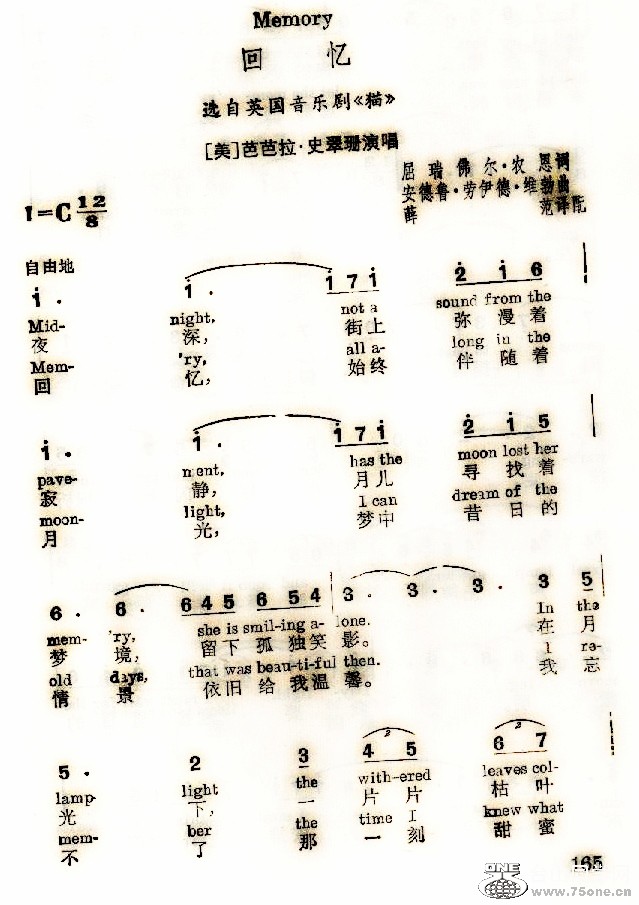 Memory
回 忆
选自英国音乐剧《猫》
[美]芭芭拉·史翠珊演唱
屈瑞佛尔·农恩词
安德鲁·劳伊德·维勃曲
薛 范译配
1=C 12/8
自由地
1̇ · 1̇ · 1̇ 7 1̇ 2̇ 1̇ 6
Mid- night, not a sound from the
夜 深, 街上 弥漫着
Mem- 'ry, all a- long in the
回 忆, 始终 伴随着
1̇ · 1̇ · 1̇ 7 1̇ 2̇ 1̇ 5
pave- ment, has the moon lost her
寂 静, 月儿 寻找着
moon- light, I can dream of the
月 光, 梦中 昔日的
6 · 6 · 6 4 5 6 5 4 3 · 3 · 3 · 3 5
mem- 'ry, she is smil-ing a- lone. In the
梦 境, 留下孤独笑影。 在月
old days, that was beau-ti-ful then. I re-
情 景 依旧给我温馨。 我忘
5 · 2 3 4 5 6 7
lamp- light the with-ered leaves col-
光 下, 一 片片 枯叶
mem- ber the time I knew what
不 了 那 一刻 甜蜜
165
ONE
www.75one.com